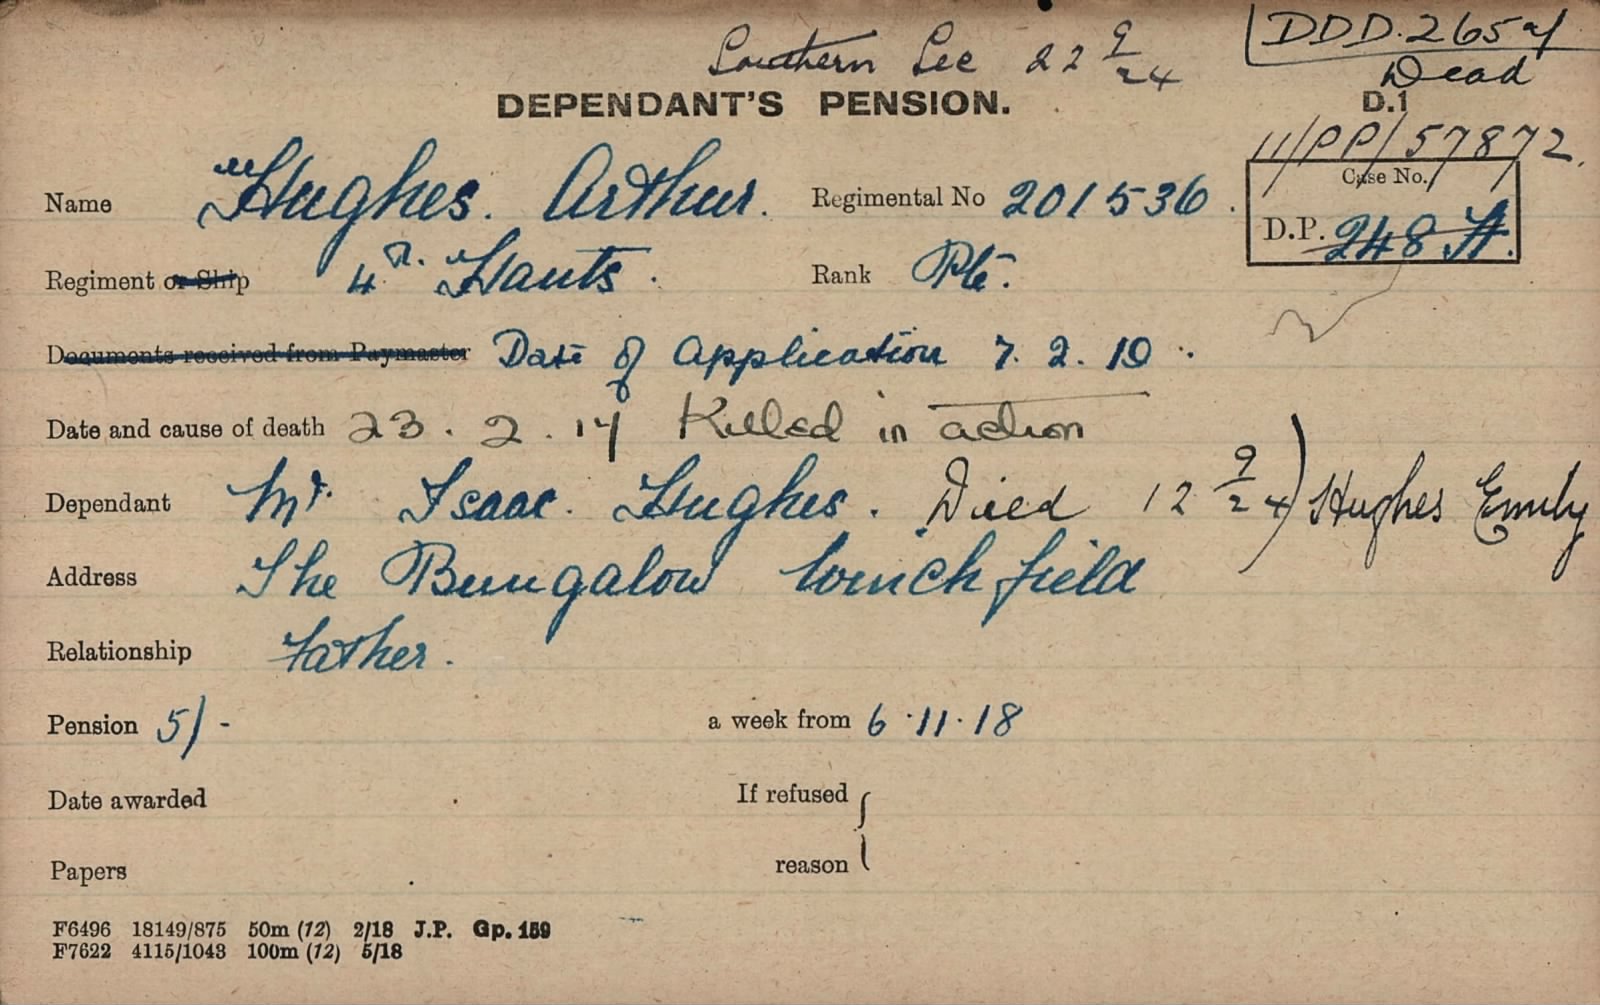 Southern Lee 22 9/24
DDD.265
Dead
DEPENDANT'S PENSION.
D.1
11/PP/57872.
Name Hughes. Arthur. Regimental No 201536.
Case No.
D.P. 248 A.
Regiment or Ship 4th. Hants. Rank Pte.
Documents received from Paymaster Date of Application 7.2.19.
Date and cause of death 23.2.17 Killed in action
Dependant Mr. Isaac. Hughes. Died 12 9/24) Hughes Emily
Address The Bungalow Winchfield
Relationship Father.
Pension 5/- a week from 6.11.18
Date awarded If refused
Papers reason
F6496 18149/875 50m (12) 2/18 J.P. Gp. 159
F7622 4115/1043 100m (12) 5/18